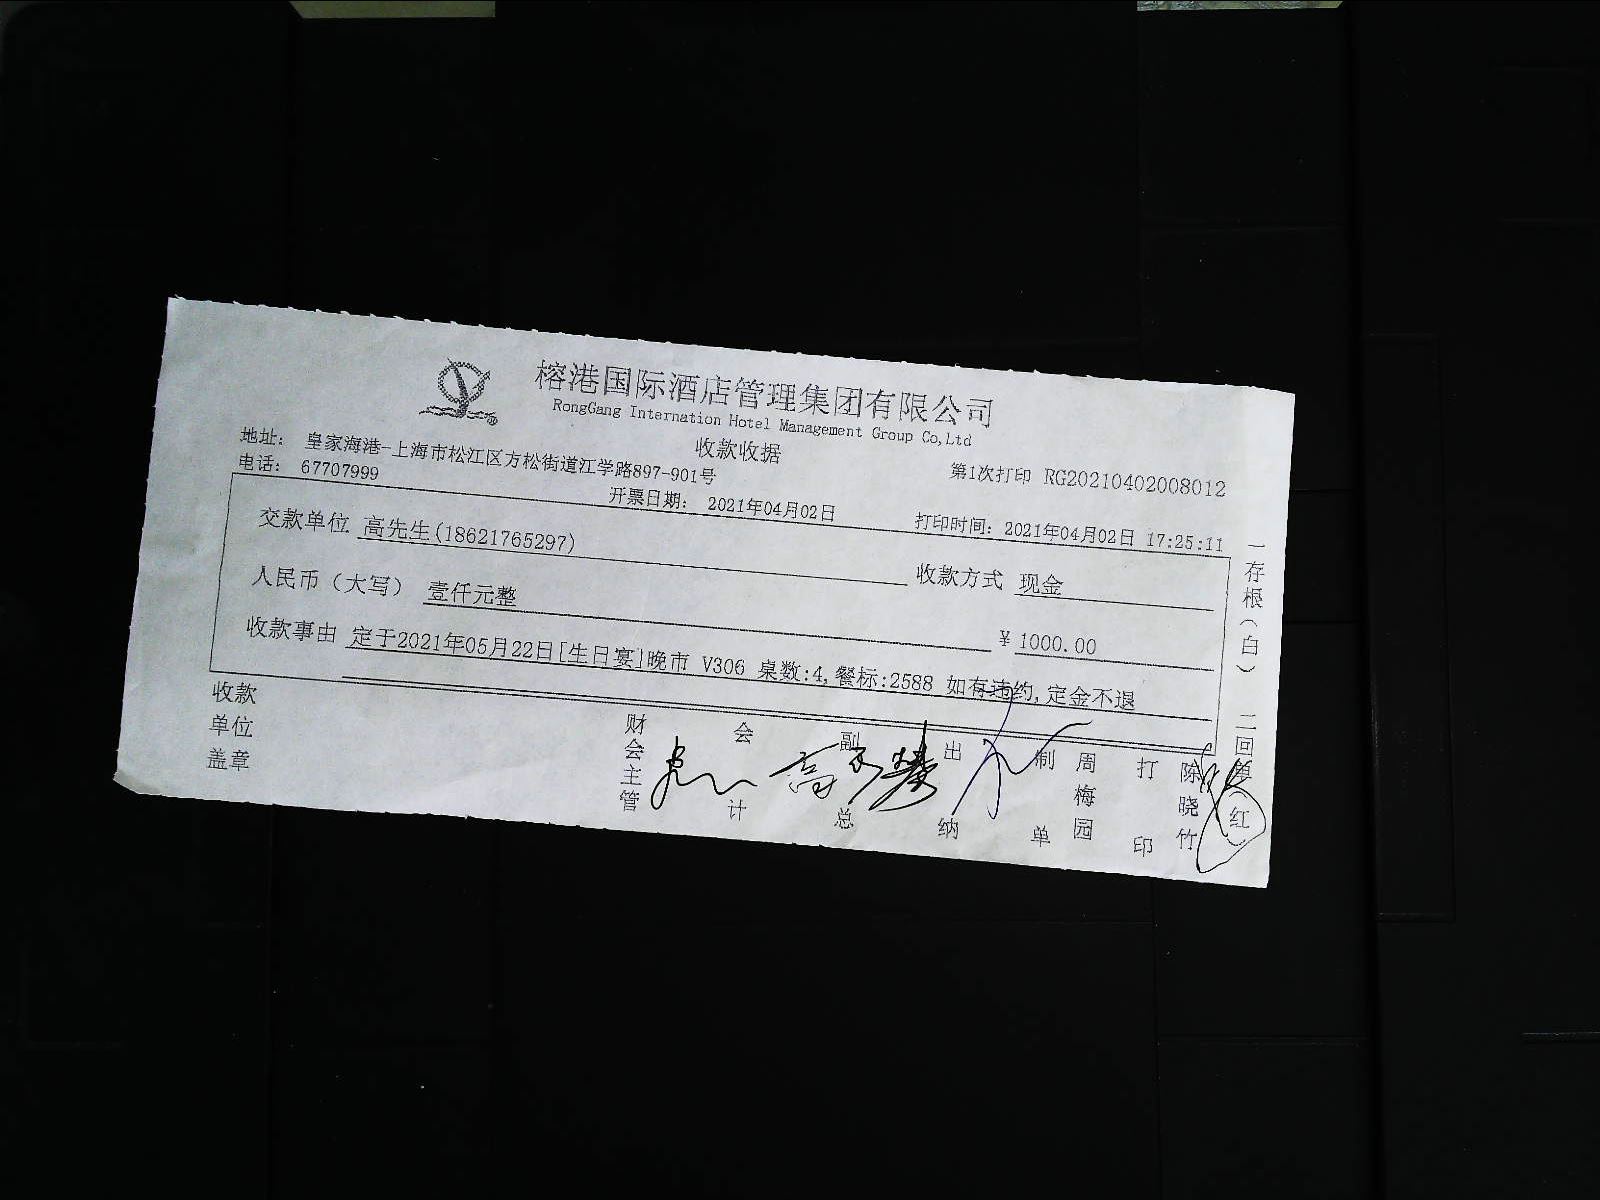 榕港国际酒店管理集团有限公司
RongGang Internation Hotel Management Group Co,Ltd
收款收据
地址： 皇家海港-上海市松江区方松街道江学路897-901号
电话： 67707999
第1次打印 RG20210402008012
开票日期： 2021年04月02日
打印时间：2021年04月02日 17:25:11
交款单位 高先生(18621765297)
收款方式 现金
人民币（大写） 壹仟元整
￥1000.00
收款事由 定于2021年05月22日[生日宴]晚市 V306 桌数:4,餐标:2588 如有违约,定金不退
收款单位盖章
财会主管
会计
副总
出纳
制单 周梅园
打印 陈晓竹
一存根（白） 二回单
红